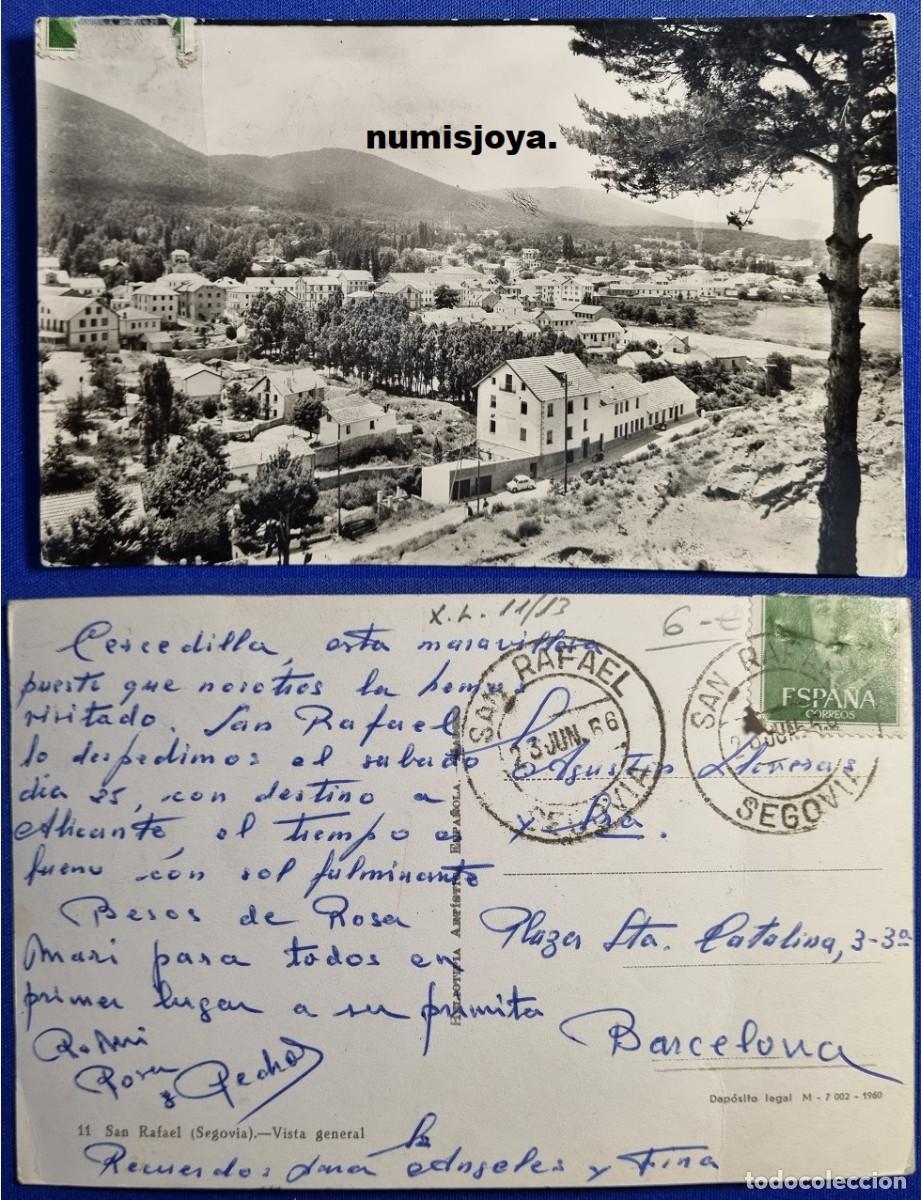 numisjoya.
X.L. 11/13
6-€
Cercedilla, esta maravillosa
puesto que nosotros la hemos
visitado. San Rafael
lo despedimos el sabado
dia 25, con destino a
Alicante el tiempo es
bueno con sol fulminante
Besos de Rosa
Mari para todos en
primer lugar a su primita
Rosa
y Pedro
11 San Rafael (Segovia).—Vista general
Recuerdos para Angeles y Fina
HELIOTIPIA ARTÍSTICA ESPAÑOLA.
SAN RAFAEL
23 JUN. 66
SEGOVIA
SAN RAFAEL
JUN. 66
SEGOVIA
ESPAÑA
CORREOS
Sr Agustin
y Sra.
Plaza Sta. Catalina, 3-3ª
Barcelona
Depósito legal M - 7 002 - 1960
todocoleccion